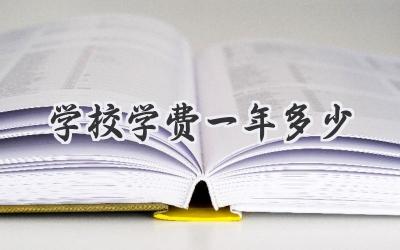 学校学费一年多少